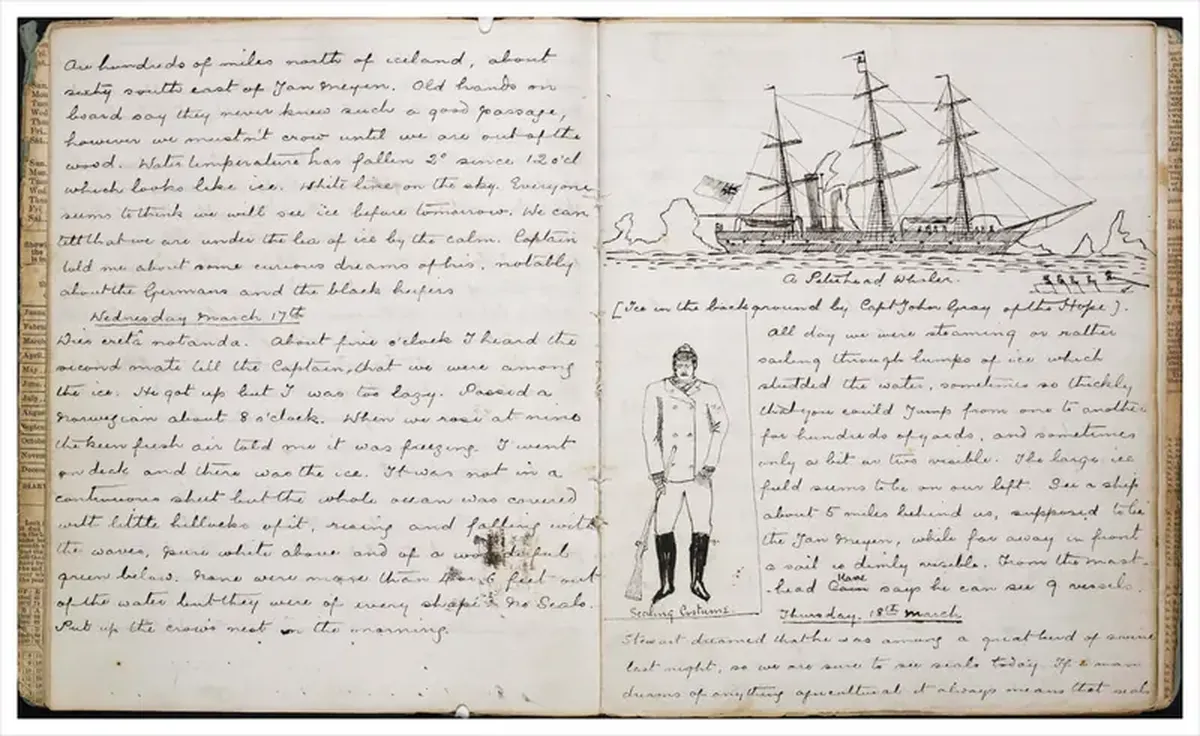 Are hundreds of miles north of iceland, about
sixty south east of Jan Meyen. Old hands on
board say they never knew such a good passage,
however we mustn't crow until we are out of the
wood. Water temperature has fallen 2° since 12 o'cl
which looks like ice. White line on the sky. Everyone
seems to think we will see ice before tomorrow. We can
tell that we are under the lea of ice by the calm. Captain
told me about some curious dreams of his, notably
about the Germans and the black heifers
Wednesday March 17th
Dies cretâ notanda. About five o'clock I heard the
second mate tell the Captain, that we were among
the ice. He got up but I was too lazy. Passed a
Norwegian about 8 o'clock. When we rose at nine
the keen fresh air told me it was freezing. I went
on deck and there was the ice. It was not in a
continuous sheet but the whole ocean was covered
with little hillocks of it, rising and falling with
the waves, pure white above and of a wonderful
green below. None were more than 4 or 6 feet out
of the water but they were of every shape. No Seals.
Put up the crow's nest in the morning.
A Peterhead Whaler.
[Ice in the background by Capt John Gray of the Hope].
Sealing Costume.
All day we were steaming or rather
sailing through lumps of ice which
studded the water, sometimes so thickly
that you could jump from one to another
for hundreds of yards, and sometimes
only a bit or two visible. The large ice
field seems to be on our left. See a ship
about 5 miles behind us, supposed to be
the Jan Meyen, while far away in front
a sail is dimly visible. From the mast-
head says he can see 9 vessels.
Thursday. 18th March
Stewart dreamed that he was among a great herd of swine
last night, so we are sure to see seals today. If a man
dreams of anything agricultural it always means that seals